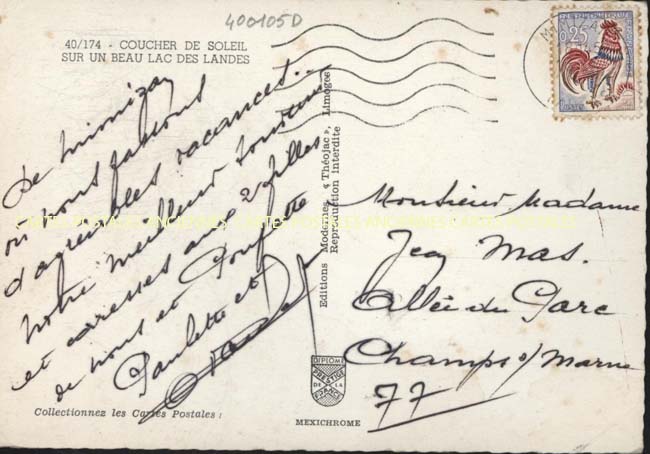 400105D
40/174 - COUCHER DE SOLEIL
SUR UN BEAU LAC DES LANDES
0,25
De mimizan
ou nous passons
d'agréables vacances...
notre meilleur souvenir
et caresses aux 2 filles
de nous et
Paulette et
Collectionnez les Cartes Postales :
Editions Modernes « Théojac », Limoges
Reproduction interdite
DIPLOME
PRESTIGE
DE LA
FRANCE
MEXICHROME
CARTES POSTALES ANCIENNES CARTES POSTALES ANCIENNES CARTES POSTALES
Monsieur Madame
Jean Mas.
Allée du Parc
Champs s/ Marne
77